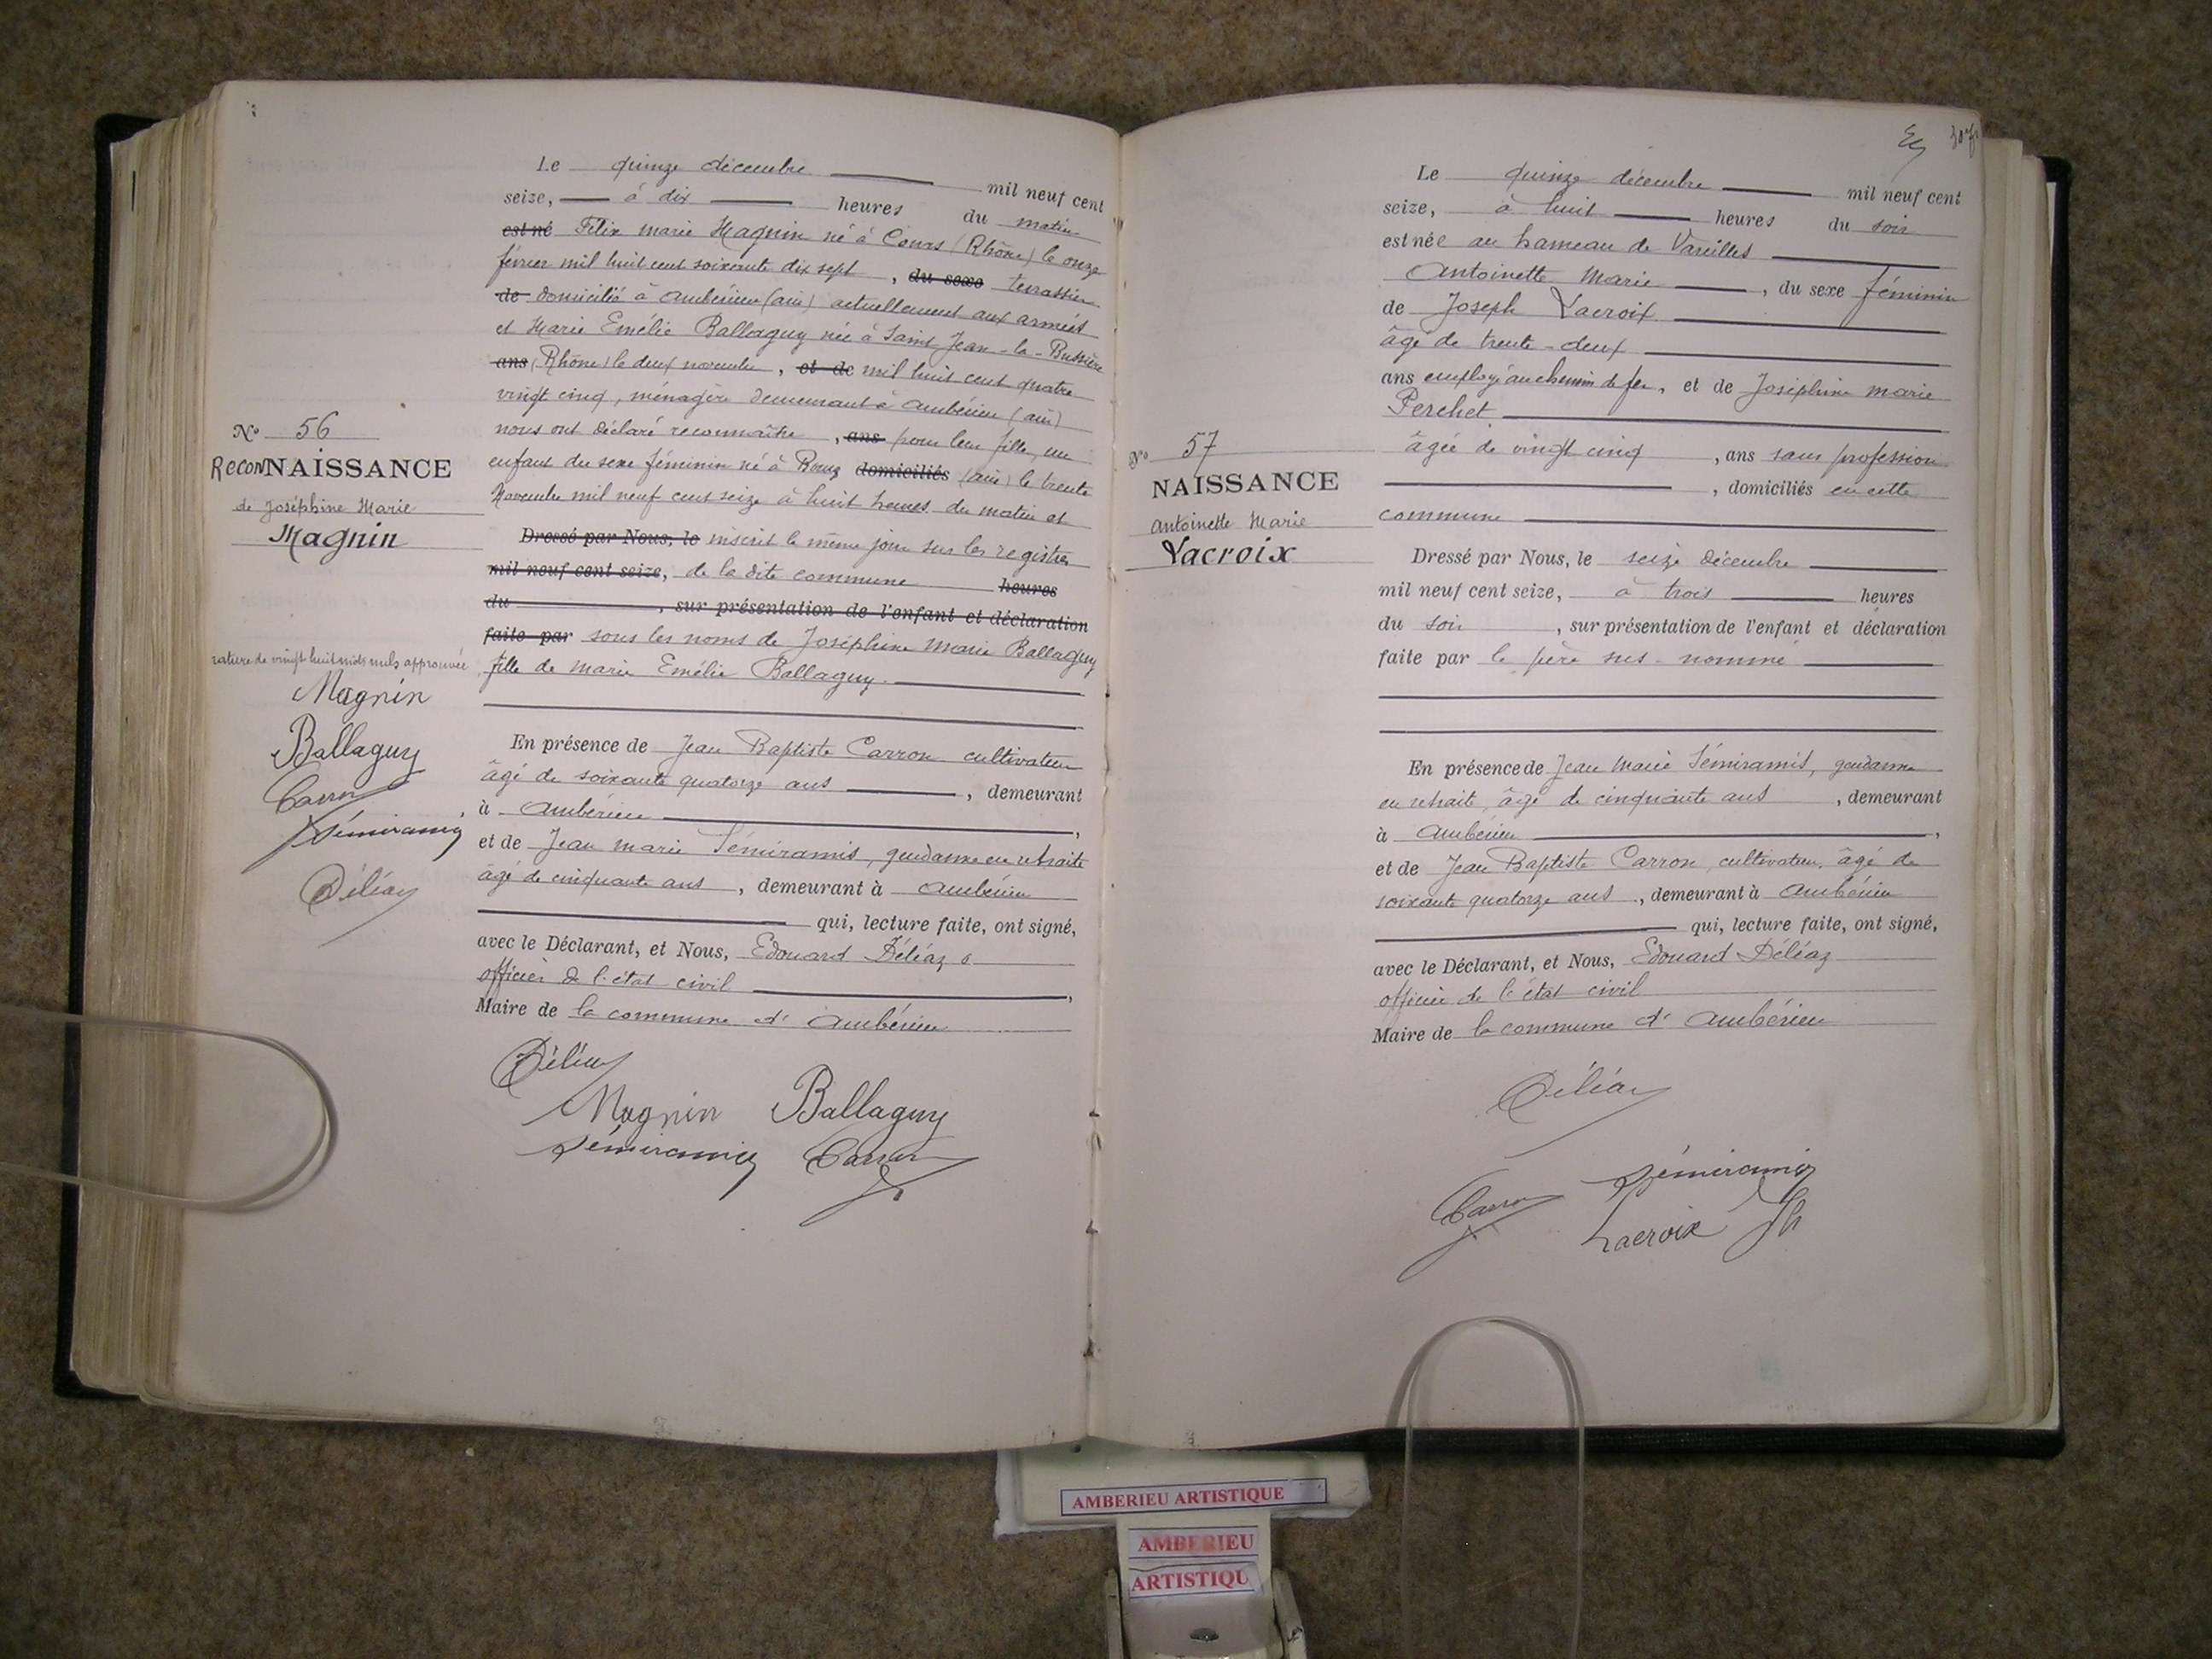 Le quinze décembre mil neuf cent
seize, à dix heures du matin
est né Félix marie Magnin né à Cours (Rhône) le onze
février mil huit cent soixante dix sept, du sexe terrassier
de domicilié à Ambérieu (ain) actuellement aux armées
et Marie Emélie Ballaguy née à Saint Jean-la-Bussière
ans (Rhône) le deux novembre, et de mil huit cent quatre
vingt cinq, ménagère demeurant à Ambérieu (ain)
nous ont déclaré reconnaître, ans pour leur fille, un
enfant du sexe féminin né à Bourg domiciliés (ain) le trente
Novembre mil neuf cent seize à huit heures du matin et
Dressé par Nous, le inscrit le même jour sur les registres
mil neuf cent seize, de la dite commune heures
du , sur présentation de l'enfant et déclaration
faite par sous les noms de Joséphine Marie Ballaguy
fille de marie Emélie Ballaguy.
En présence de Jean Baptiste Carron cultivateur
âgé de soixante quatorze ans, demeurant
à Ambérieu,
et de Jean marie Sémiramis, gendarme en retraite
âgé de cinquante ans, demeurant à Ambérieu
qui, lecture faite, ont signé,
avec le Déclarant, et Nous, Edouard Déléaz
officier de l'état civil,
Maire de la commune d'Ambérieu
Déléaz
Magnin Ballaguy
Sémiramis Carron
No 56
ReconNAISSANCE
de Joséphine Marie
Magnin
rature de vingt huit mots nuls approuvée
Magnin
Ballaguy
Carron
Sémiramis
Déléaz
Le quinze décembre mil neuf cent
seize, à huit heures du soir
est née au hameau de Vareilles
Antoinette Marie, du sexe féminin
de Joseph Lacroix
âgé de trente-deux
ans employé au chemin de fer, et de Joséphine marie
Perchet
âgée de vingt cinq, ans sans profession
, domiciliés en cette
commune
Dressé par Nous, le seize décembre
mil neuf cent seize, à trois heures
du soir, sur présentation de l'enfant et déclaration
faite par le père sus-nommé
En présence de Jean Marie Sémiramis, gendarme
en retraite, âgé de cinquante ans, demeurant
à Ambérieu,
et de Jean Baptiste Carron, cultivateur, âgé de
soixante quatorze ans, demeurant à Ambérieu
qui, lecture faite, ont signé,
avec le Déclarant, et Nous, Edouard Déléaz
officier de l'état civil
Maire de la commune d'Ambérieu
Déléaz
Sémiramis
Carron
Lacroix Jh
No 57
NAISSANCE
Antoinette Marie
Lacroix
AMBERIEU ARTISTIQUE
AMBERIEU
ARTISTIQU